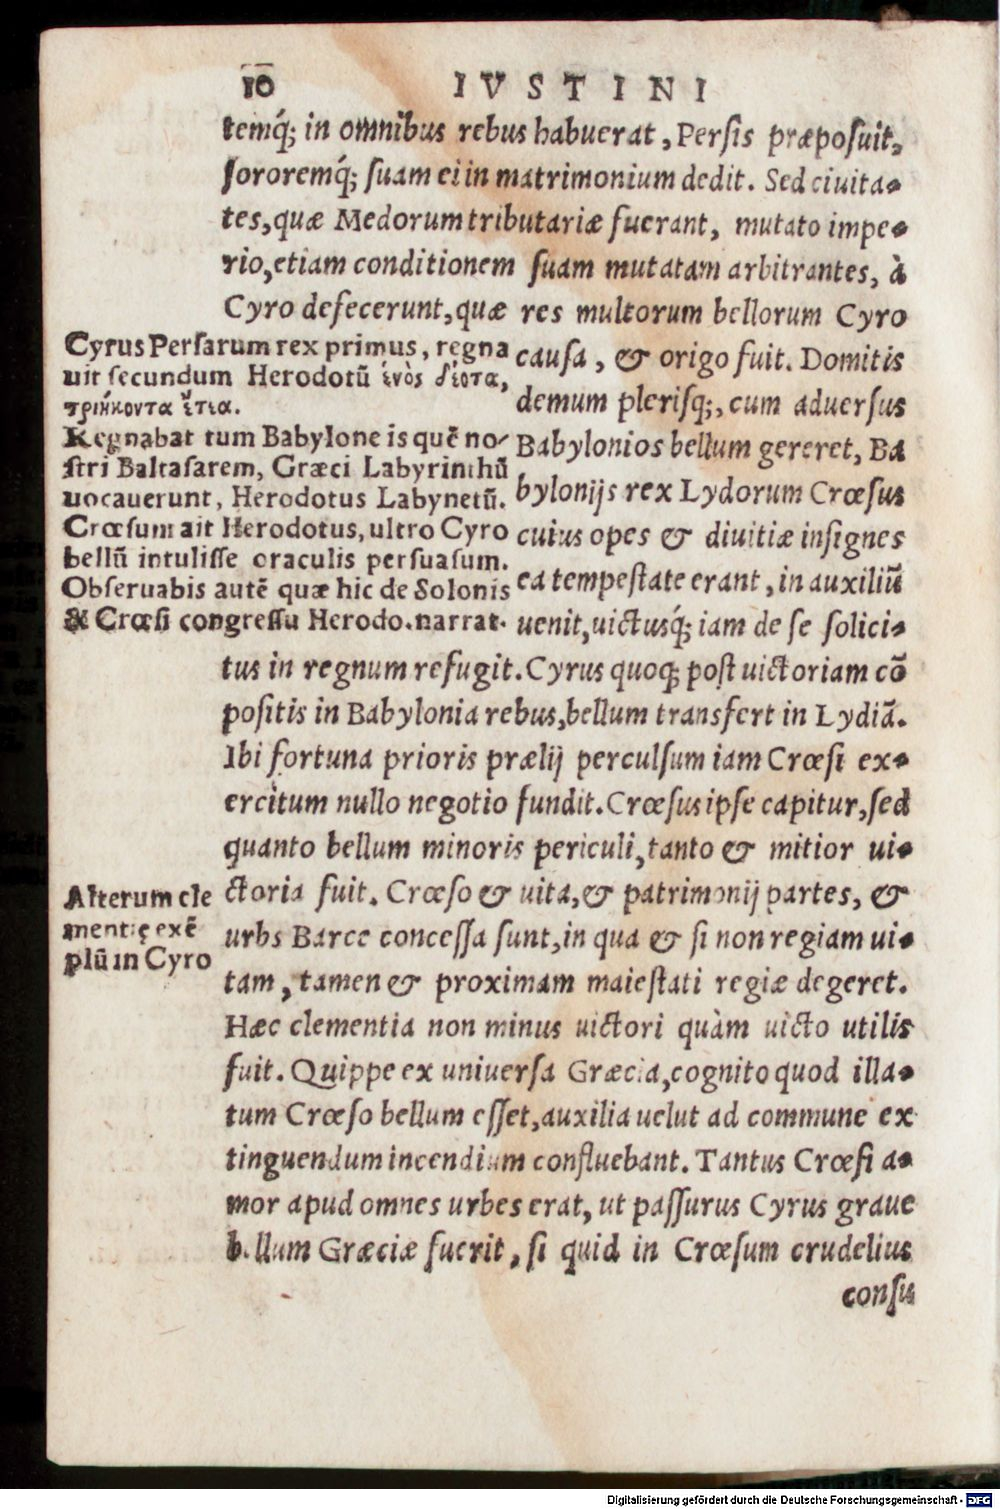 10 IVSTINI
temq́; in omnibus rebus habuerat, Persis præposuit,
sororemq́; suam ei in matrimonium dedit. Sed ciuita-
tes, quæ Medorum tributariæ fuerant, mutato impe-
rio, etiam conditionem suam mutatam arbitrantes, à
Cyro defecerunt, quæ res multorum bellorum Cyro
causa, & origo fuit. Domitis
demum plerisq;, cum aduersus
Babylonios bellum gereret, Ba
bylonijs rex Lydorum Crœsus
cuius opes & diuitiæ insignes
ea tempestate erant, in auxiliũ
uenit, uictusq́; iam de se solici-
tus in regnum refugit. Cyrus quoq; post uictoriam cõ
positis in Babylonia rebus, bellum transfert in Lydiã.
Ibi fortuna prioris prælij perculsum iam Crœsi ex-
ercitum nullo negotio fundit. Crœsus ipse capitur, sed
quanto bellum minoris periculi, tanto & mitior ui-
ctoria fuit. Crœso & uita, & patrimonij partes, &
urbs Barce concessa sunt, in qua & si non regiam ui-
tam, tamen & proximam maiestati regiæ degeret.
Hæc clementia non minus uictori quàm uicto utilis
fuit. Quippe ex uniuersa Græcia, cognito quod illa-
tum Crœso bellum esset, auxilia uelut ad commune ex
tinguendum incendium confluebant. Tantus Crœsi a-
mor apud omnes urbes erat, ut passurus Cyrus graue
b.llum Græciæ fuerit, si quid in Crœsum crudelius
consu
Cyrus Persarum rex primus, regna
uit secundum Herodotũ ἑνὸς δέοτα,
τριήκοντα ἔτια.
Regnabat tum Babylone is quẽ no-
stri Baltasarem, Græci Labyrinthũ
uocauerunt, Herodotus Labynetũ.
Crœsum ait Herodotus, ultro Cyro
bellũ intulisse oraculis persuasum.
Obseruabis autẽ quæ hic de Solonis
& Crœsi congressu Herodo. narrat.
Alterum cle
mentię exẽ
plũ in Cyro
Digitalisierung gefördert durch die Deutsche Forschungsgemeinschaft - DFG